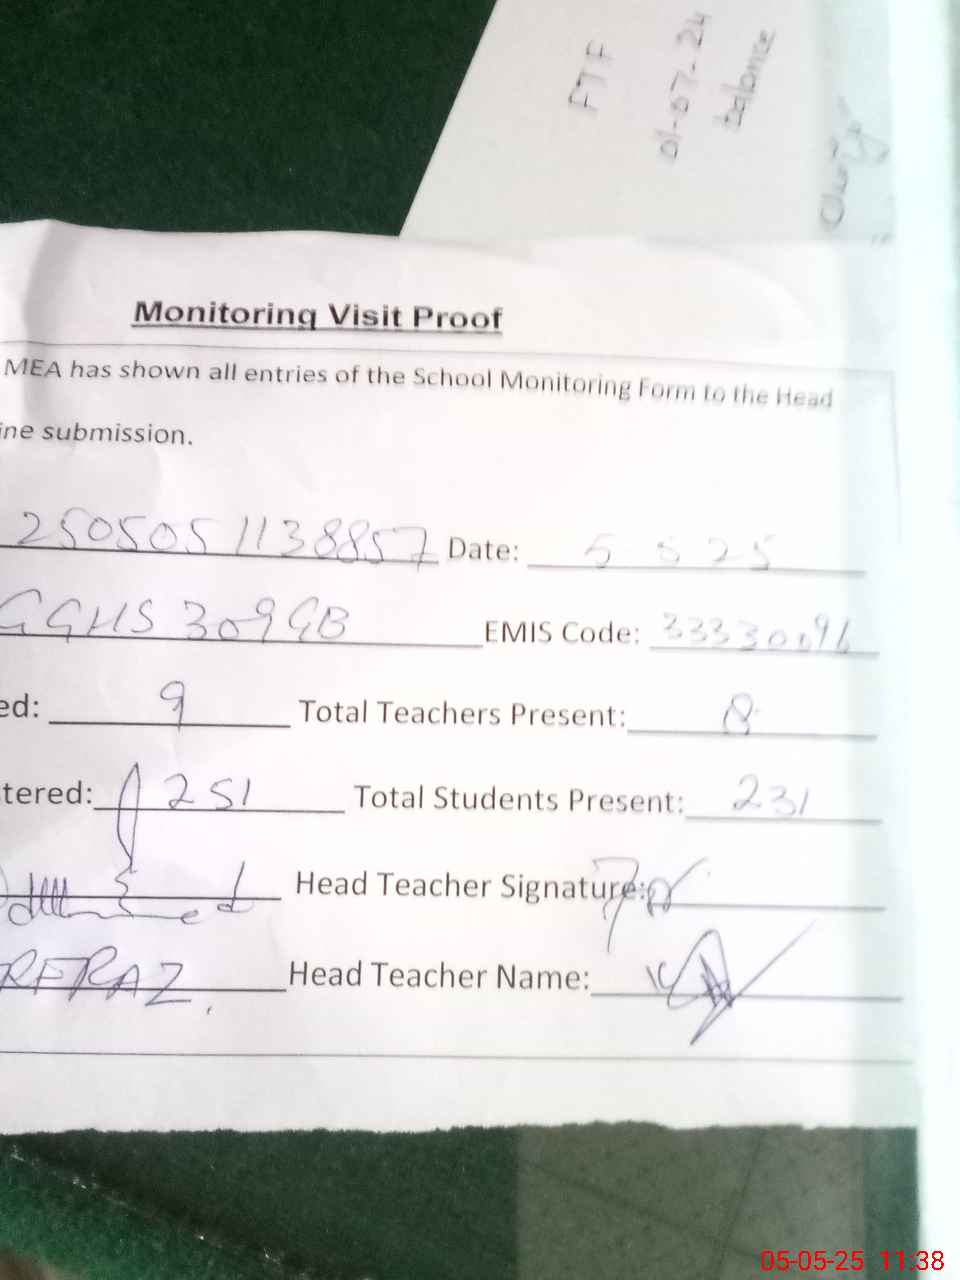 FTF
01-07-24
balance
Monitoring Visit Proof
MEA has shown all entries of the School Monitoring Form to the Head
ine submission.
2505051138857 Date: 5 5 25
GGHS 309GB EMIS Code: 33330096
ed: 9 Total Teachers Present: 8
tered: 251 Total Students Present: 231
Head Teacher Signature:
RFRAZ Head Teacher Name:
05-05-25 11:38